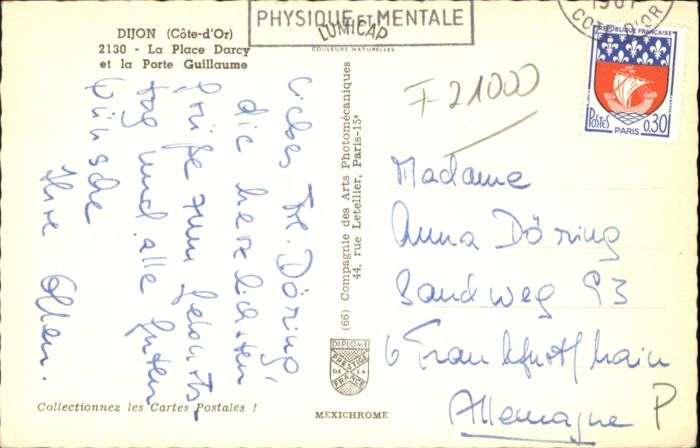 DIJON (Côte-d'Or)
2130 - La Place Darcy
et la Porte Guillaume
PHYSIQUE et MENTALE
LUMICAP
COULEURS NATURELLES
196
COTE D'OR
REPUBLIQUE FRANÇAISE
POSTES
PARIS
0,30
F 21000
Liebes Frl. Döring,
die herzlichsten
Grüße zum Geburts-
tag und alle guten
Wünsche
Ihre
(66) Compagnie des Arts Photomécaniques
44, rue Letellier, Paris-15e
Madame
Anna Döring
Sandweg 93
6 Frankfurt/Main
Allemagne
P
DIPLOME
PRESTIGE
DE LA
FRANCE
Collectionnez les Cartes Postales !
MEXICHROME